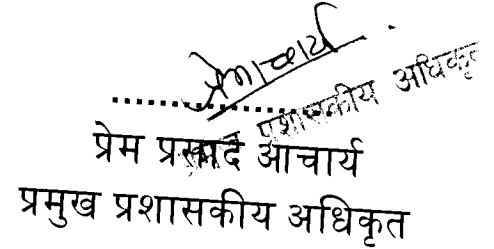 प्रेमाचार्य
....................
प्रमुख प्रशासकीय अधिकृत
प्रेम प्रसाद आचार्य
प्रमुख प्रशासकीय अधिकृत